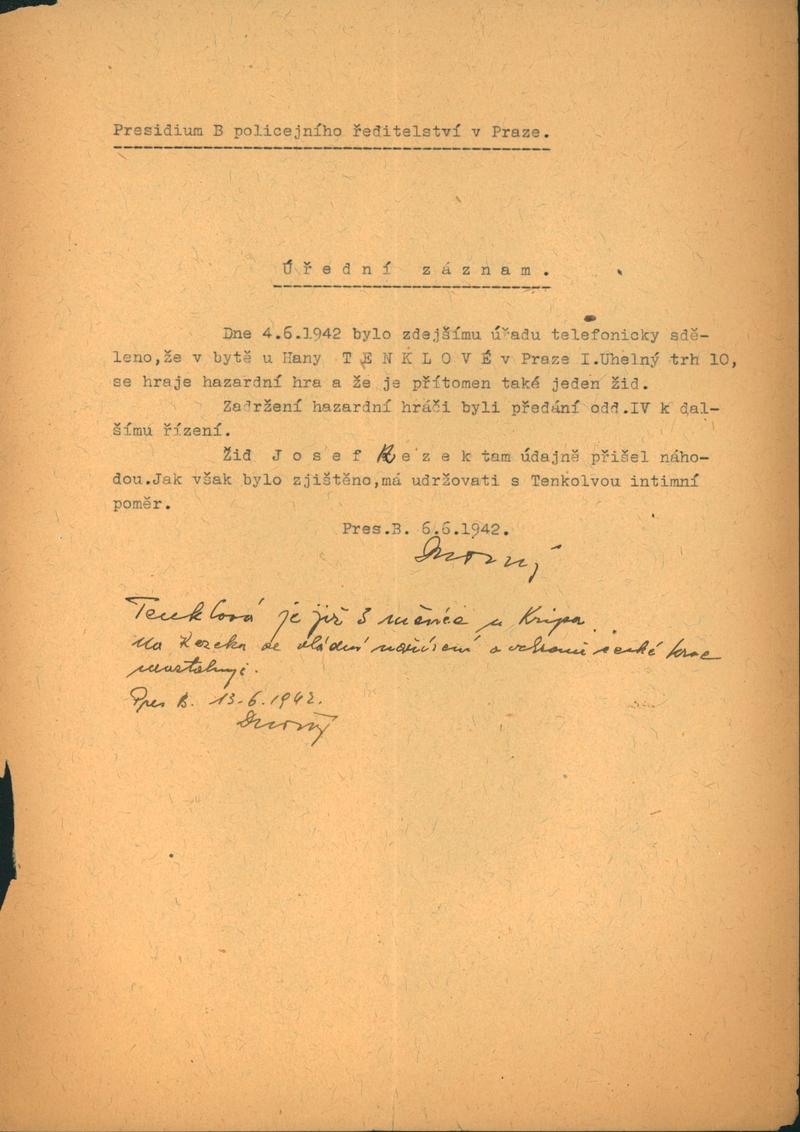 Presidium B policejního ředitelství v Praze.
Úřední záznam.
Dne 4.6.1942 bylo zdejšímu úřadu telefonicky sdě-
leno,že v bytě u Hany TENKLOVÉ v Praze I.Uhelný trh 10,
se hraje hazardní hra a že je přítomen také jeden žid.
Zadržení hazardní hráči byli předáni odd.IV k dal-
šímu řízení.
Žid Josef Kezek tam údajně přišel náho-
dou.Jak však bylo zjištěno,má udržovati s Tenkolvou intimní
poměr.
Pres.B. 6.6.1942.
Tenklová je již 3 měsíce u Kripa.
Na Kezeka se vládní nařízení o ochraně české krve
nevztahuje.
Pres B. 13.6.1942.